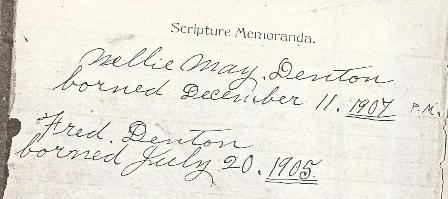 Scripture Memoranda.
Nellie May. Denton
borned December 11. 1907 P.M.
Fred. Denton
borned July 20. 1905.